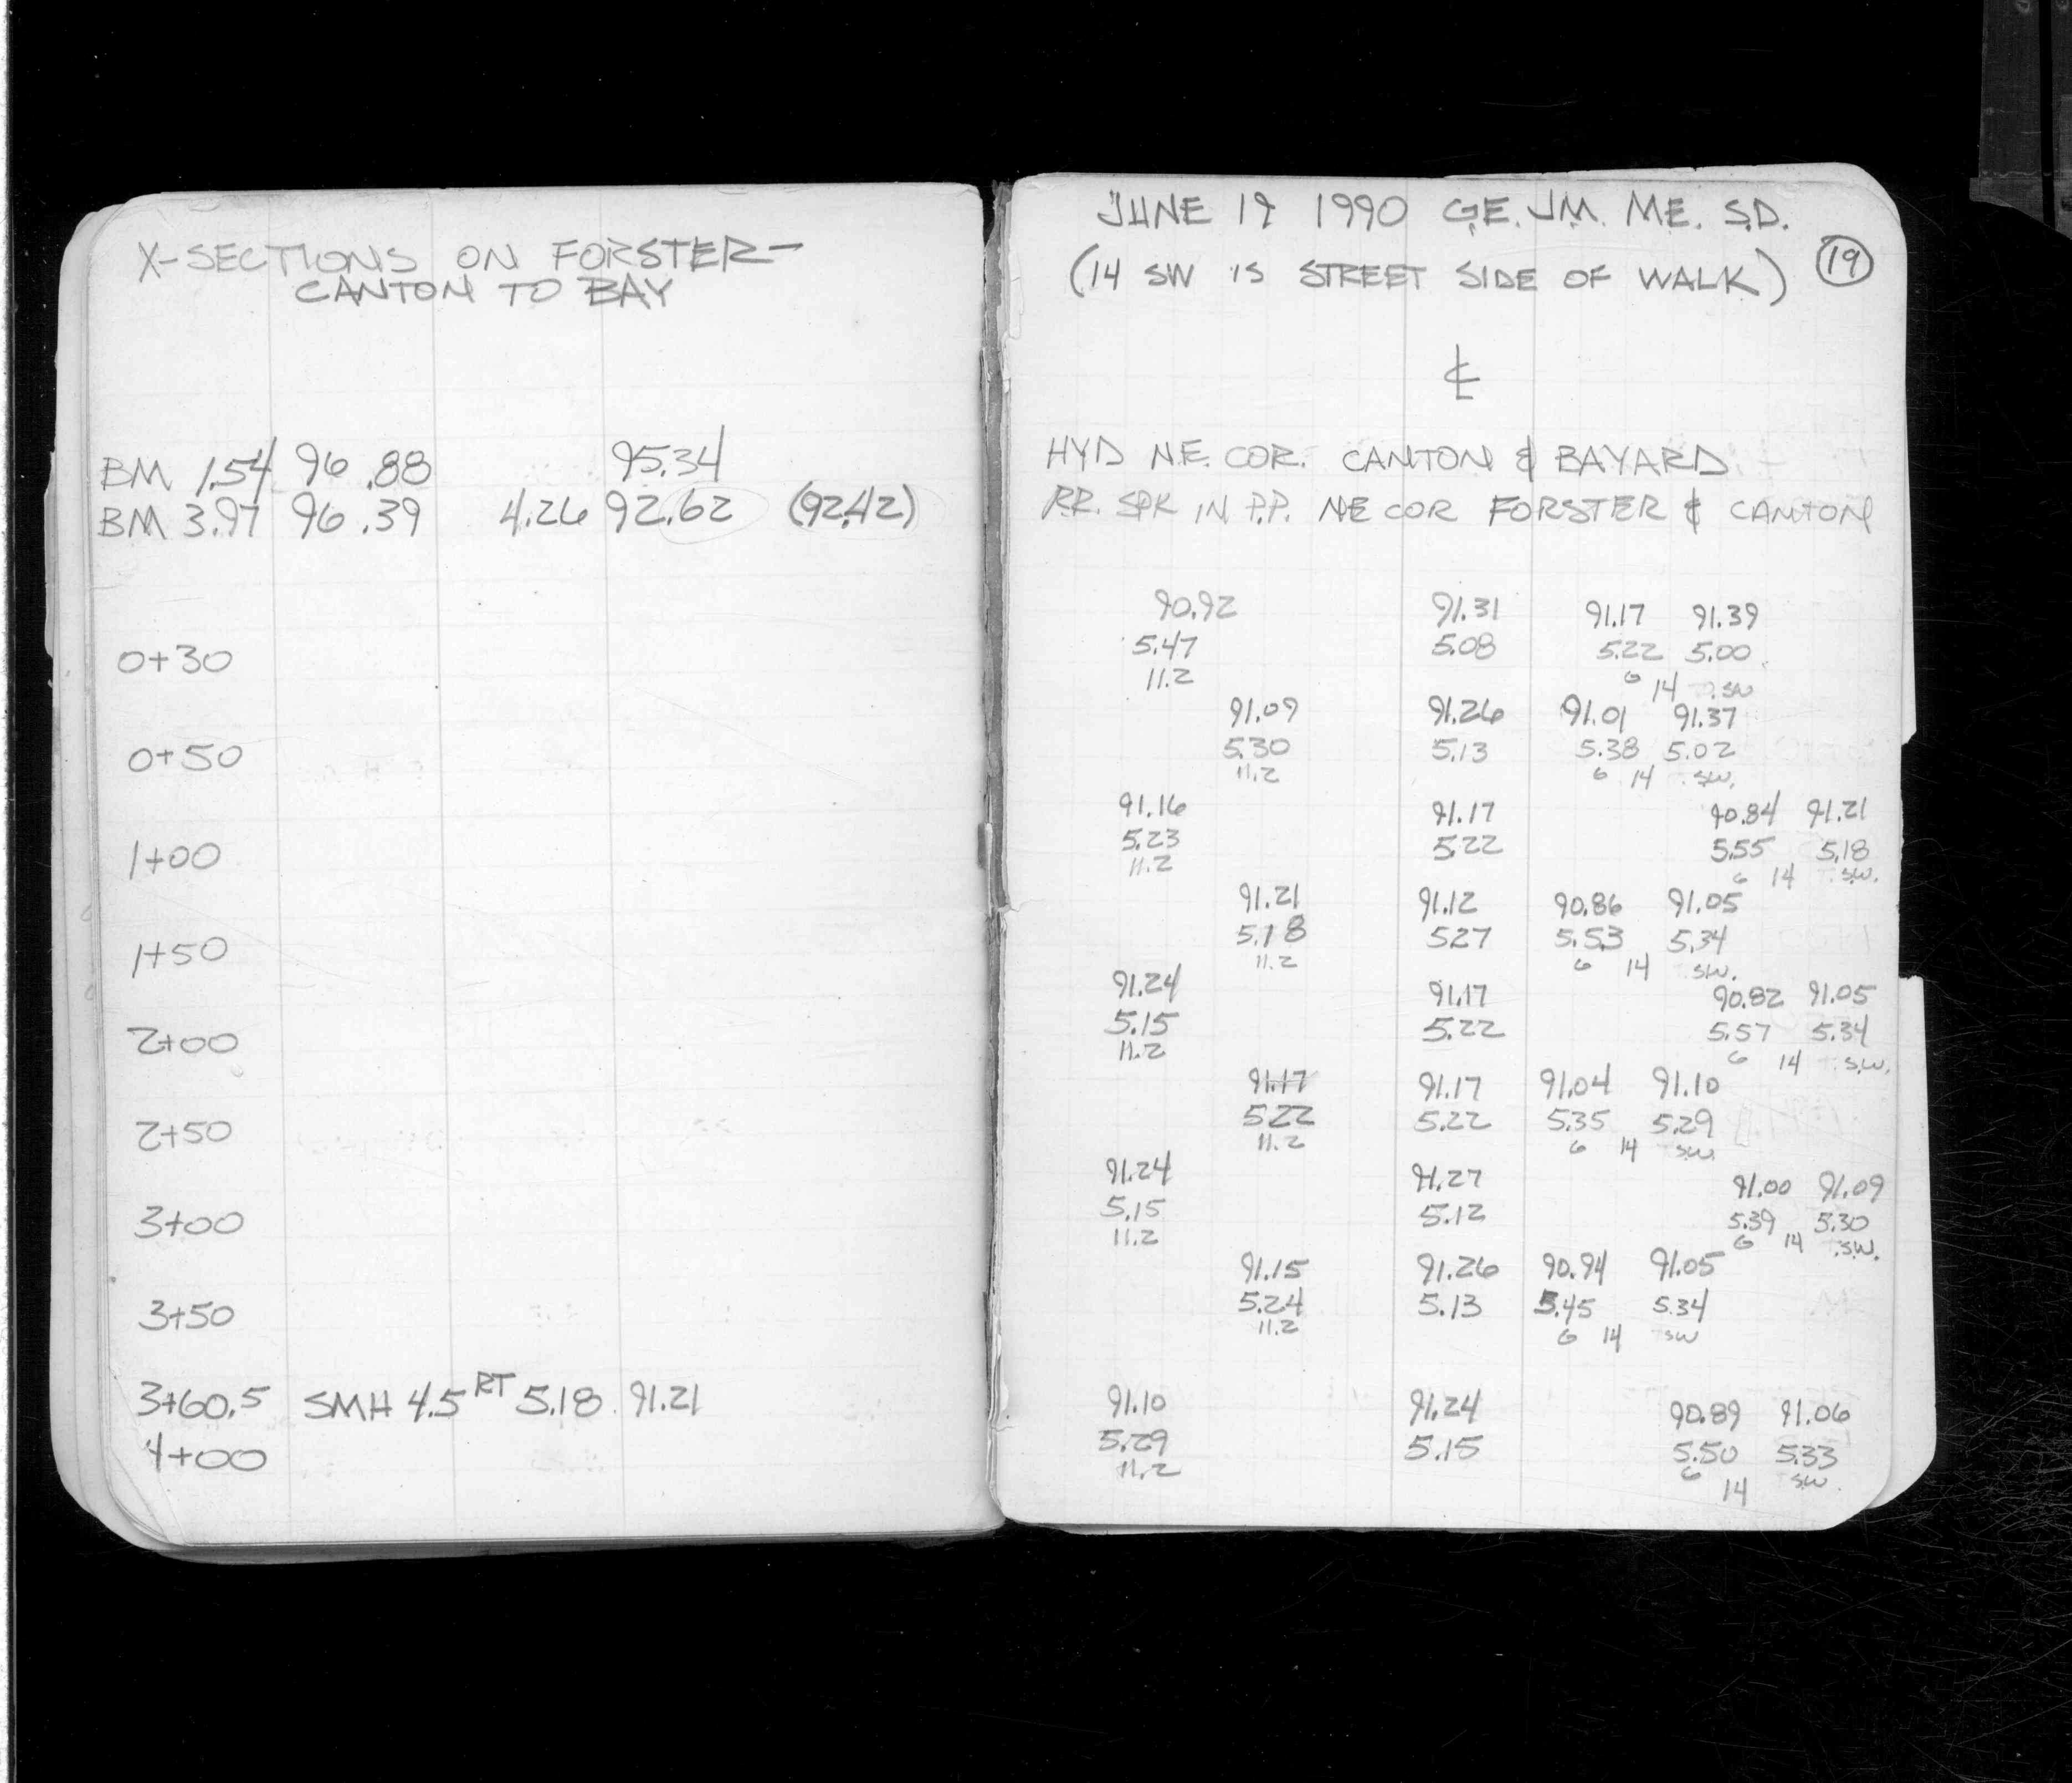 X-SECTIONS ON FORSTER-
CANTON TO BAY
BM 1.54 96.88 95.34
BM 3.97 96.39 4.26 92.62 (92.42)
0+30
0+50
1+00
1+50
2+00
2+50
3+00
3+50
3+60.5 SMH 4.5 RT 5.18 91.21
4+00
JUNE 19 1990 G.E. J.M. M.E. S.D.
(14 SW IS STREET SIDE OF WALK) 19
℄
HYD N.E. COR. CANTON & BAYARD
R.R. SPK IN P.P. NE COR FORSTER & CANTON
90.92 91.31 91.17 91.39
5.47 5.08 5.22 5.00
11.2 6 14 SW
91.09 91.26 91.01 91.37
5.30 5.13 5.38 5.02
11.2 6 14 SW.
91.16 91.17 90.84 91.21
5.23 5.22 5.55 5.18
11.2 6 14 S.W.
91.21 91.12 90.86 91.05
5.18 527 5.53 5.34
11.2 6 14 SW.
91.24 91.17 90.82 91.05
5.15 5.22 5.57 5.34
11.2 6 14 S.W.
91.17 91.17 91.04 91.10
522 5.22 5.35 5.29
11.2 6 14 SW
91.24 91.27 91.00 91.09
5.15 5.12 5.39 5.30
11.2 6 14 S.W.
91.15 91.26 90.94 91.05
5.24 5.13 5.45 5.34
11.2 6 14 SW
91.10 91.24 90.89 91.06
5.29 5.15 5.50 5.33
11.2 6 14 SW